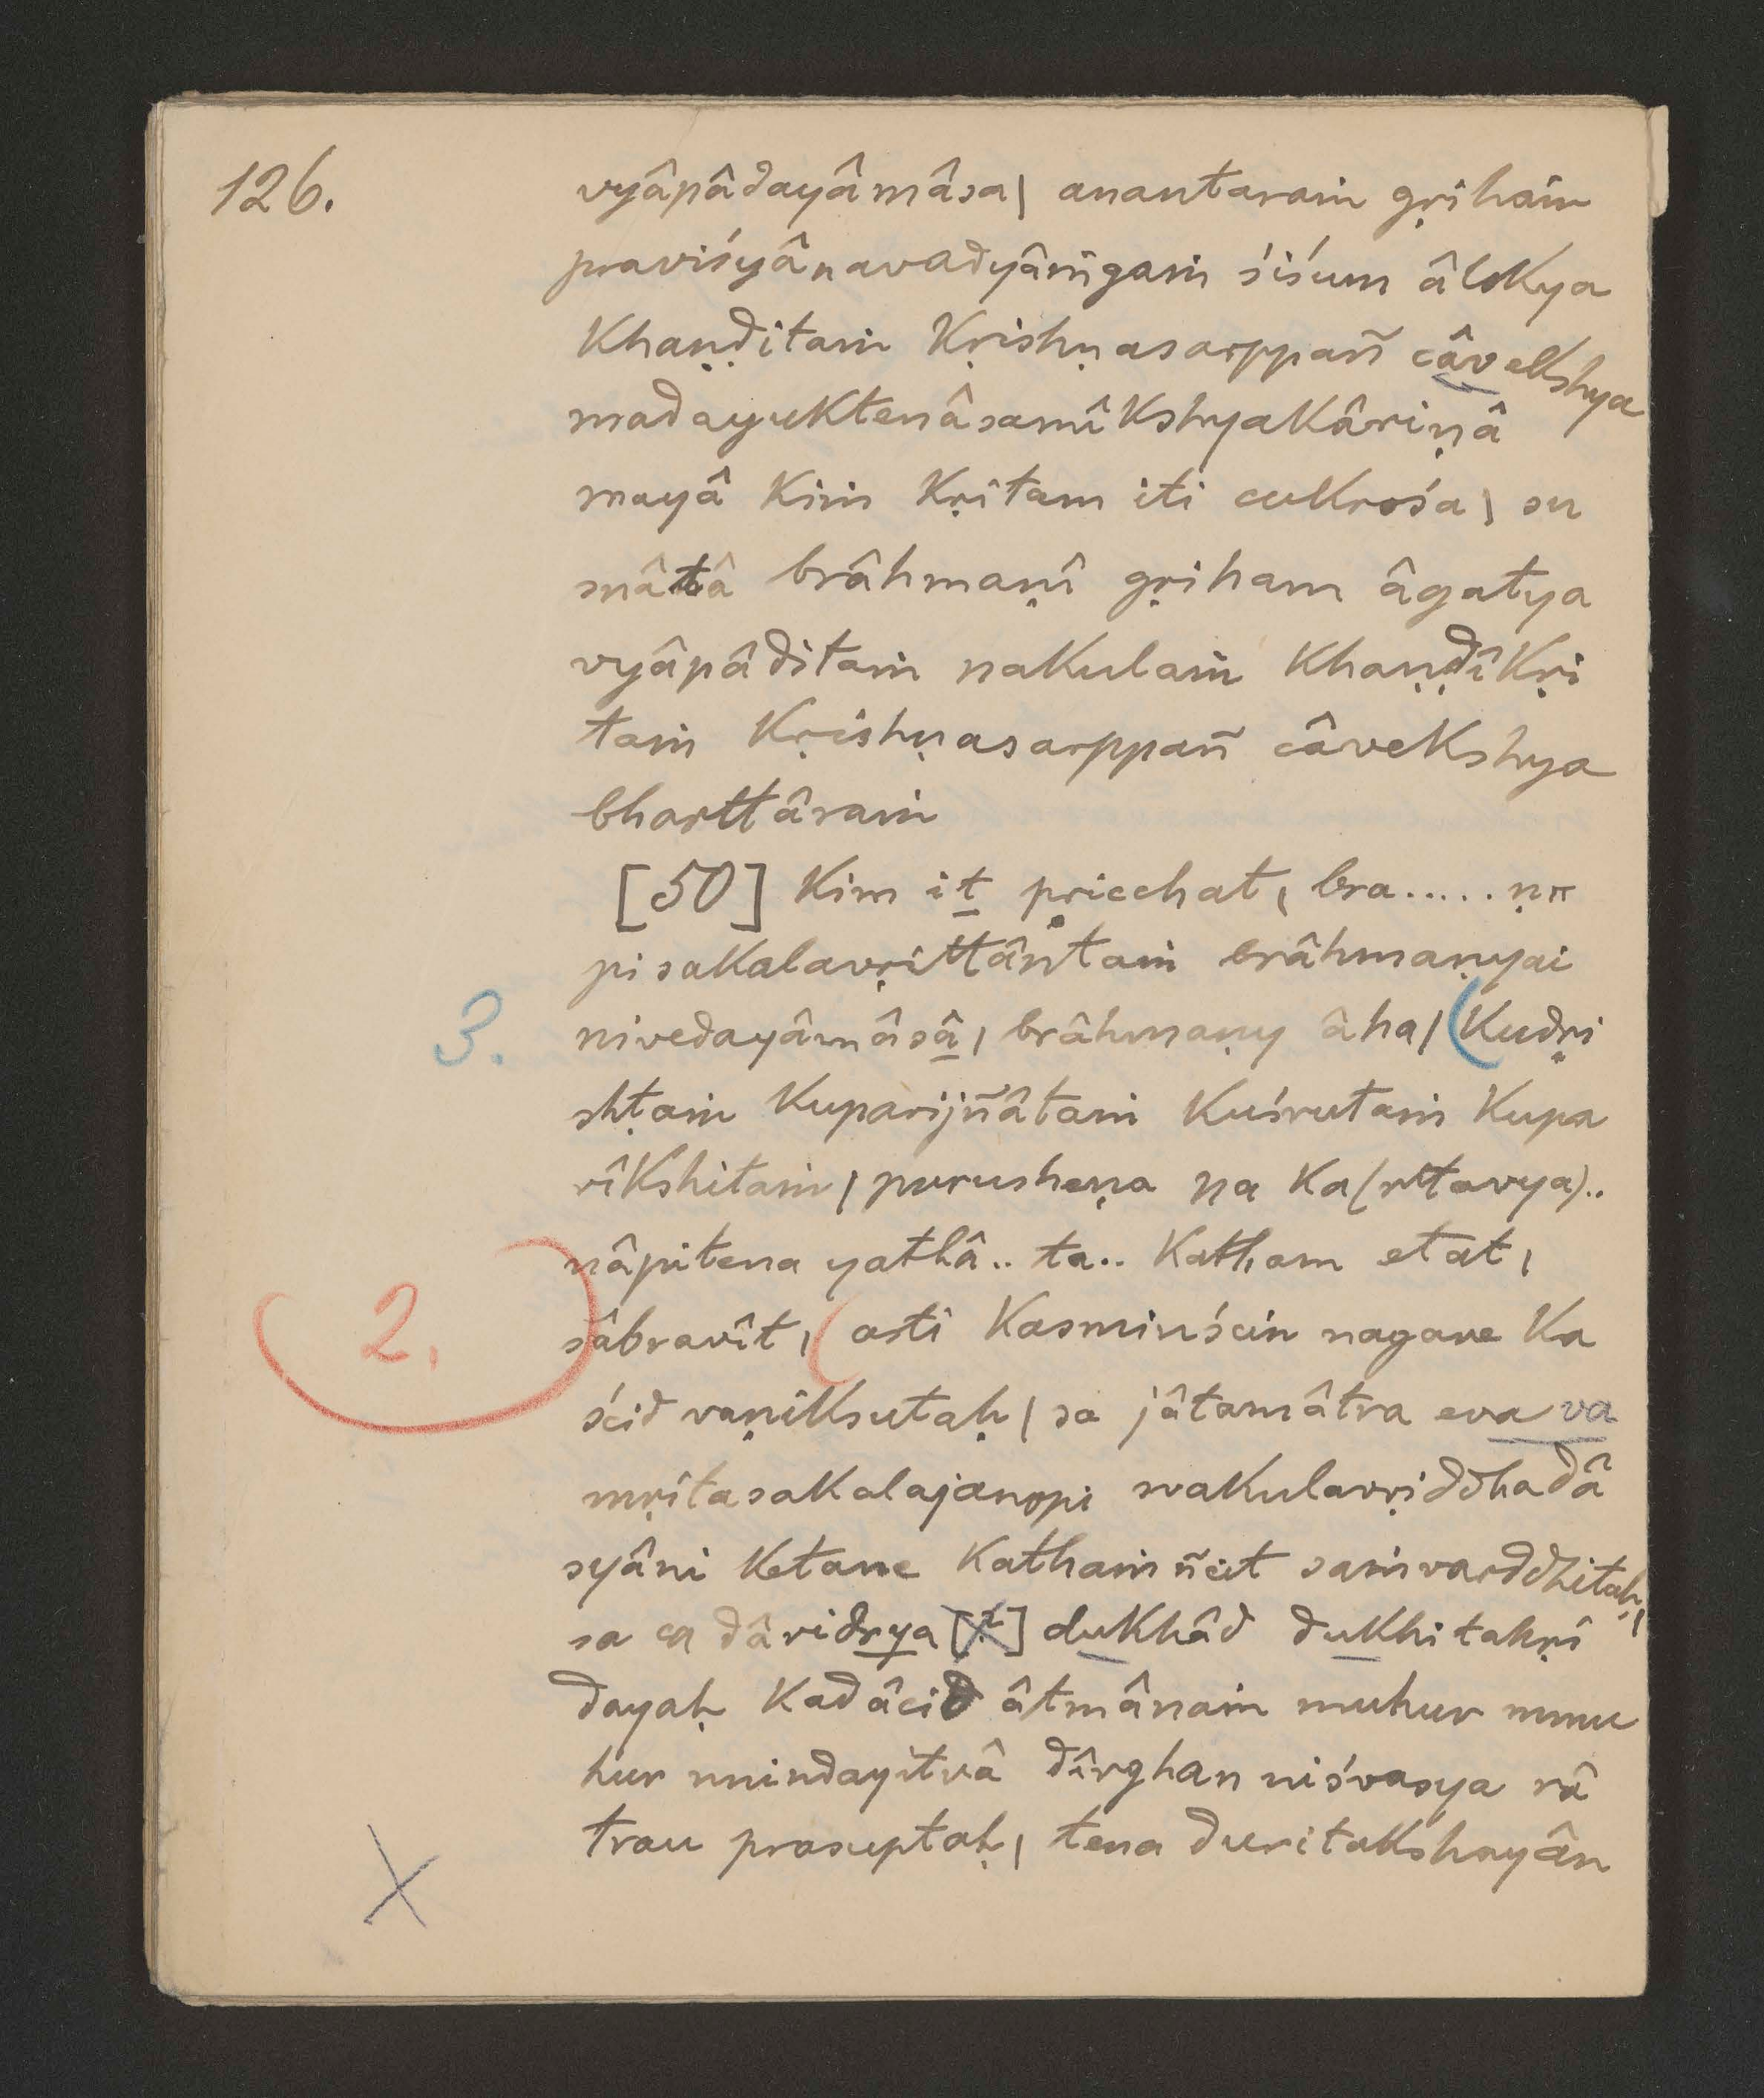 126.
vyâpâdayâmâsa| anantaraṁ gṛihaṁ
praviśyânavadyâṁgaṁ śiśum âlokya
khaṇḍitaṁ kṛishṇasarppañ câvekshya
madayuktenâsamîkshyakâriṇâ
mayâ kiṁ kṛitam iti cukrośa| su
mâtâ brâhmaṇî gṛiham âgatya
vyâpâditaṁ nakulaṁ khaṇḍîkṛi
taṁ kṛishṇasarppañ câvekshya
bharttâraṁ
[50] kim it pṛicchat, bra.....ṇo
pi sakalavṛittântaṁ brâhmaṇyai
3. nivedayâmâsâ, brâhmaṇy âha| (kudṛi
shṭaṁ kuparijñâtaṁ kuśrutaṁ kupa
rîkshitaṁ| purusheṇa na ka(rttavya)..
nâpitena yathâ.. ta.. katham etat,
2. sâbravît, (asti kasmiṁścin nagare ka
ścid vaṇiksutaḥ| sa jâtamâtra eva va
mṛitasakalajanopi svakulavṛiddhadâ
syâni ketane kathaṁñcit saṁvarddhitaḥ,
sa ca dâridrya [t] dukhâd dukhitahṛi
dayaḥ kadâcid âtmânaṁ muhur mmu
hur nnindayitvâ dîrghan niśvasya râ
trau prasuptaḥ, tena duritakshayân